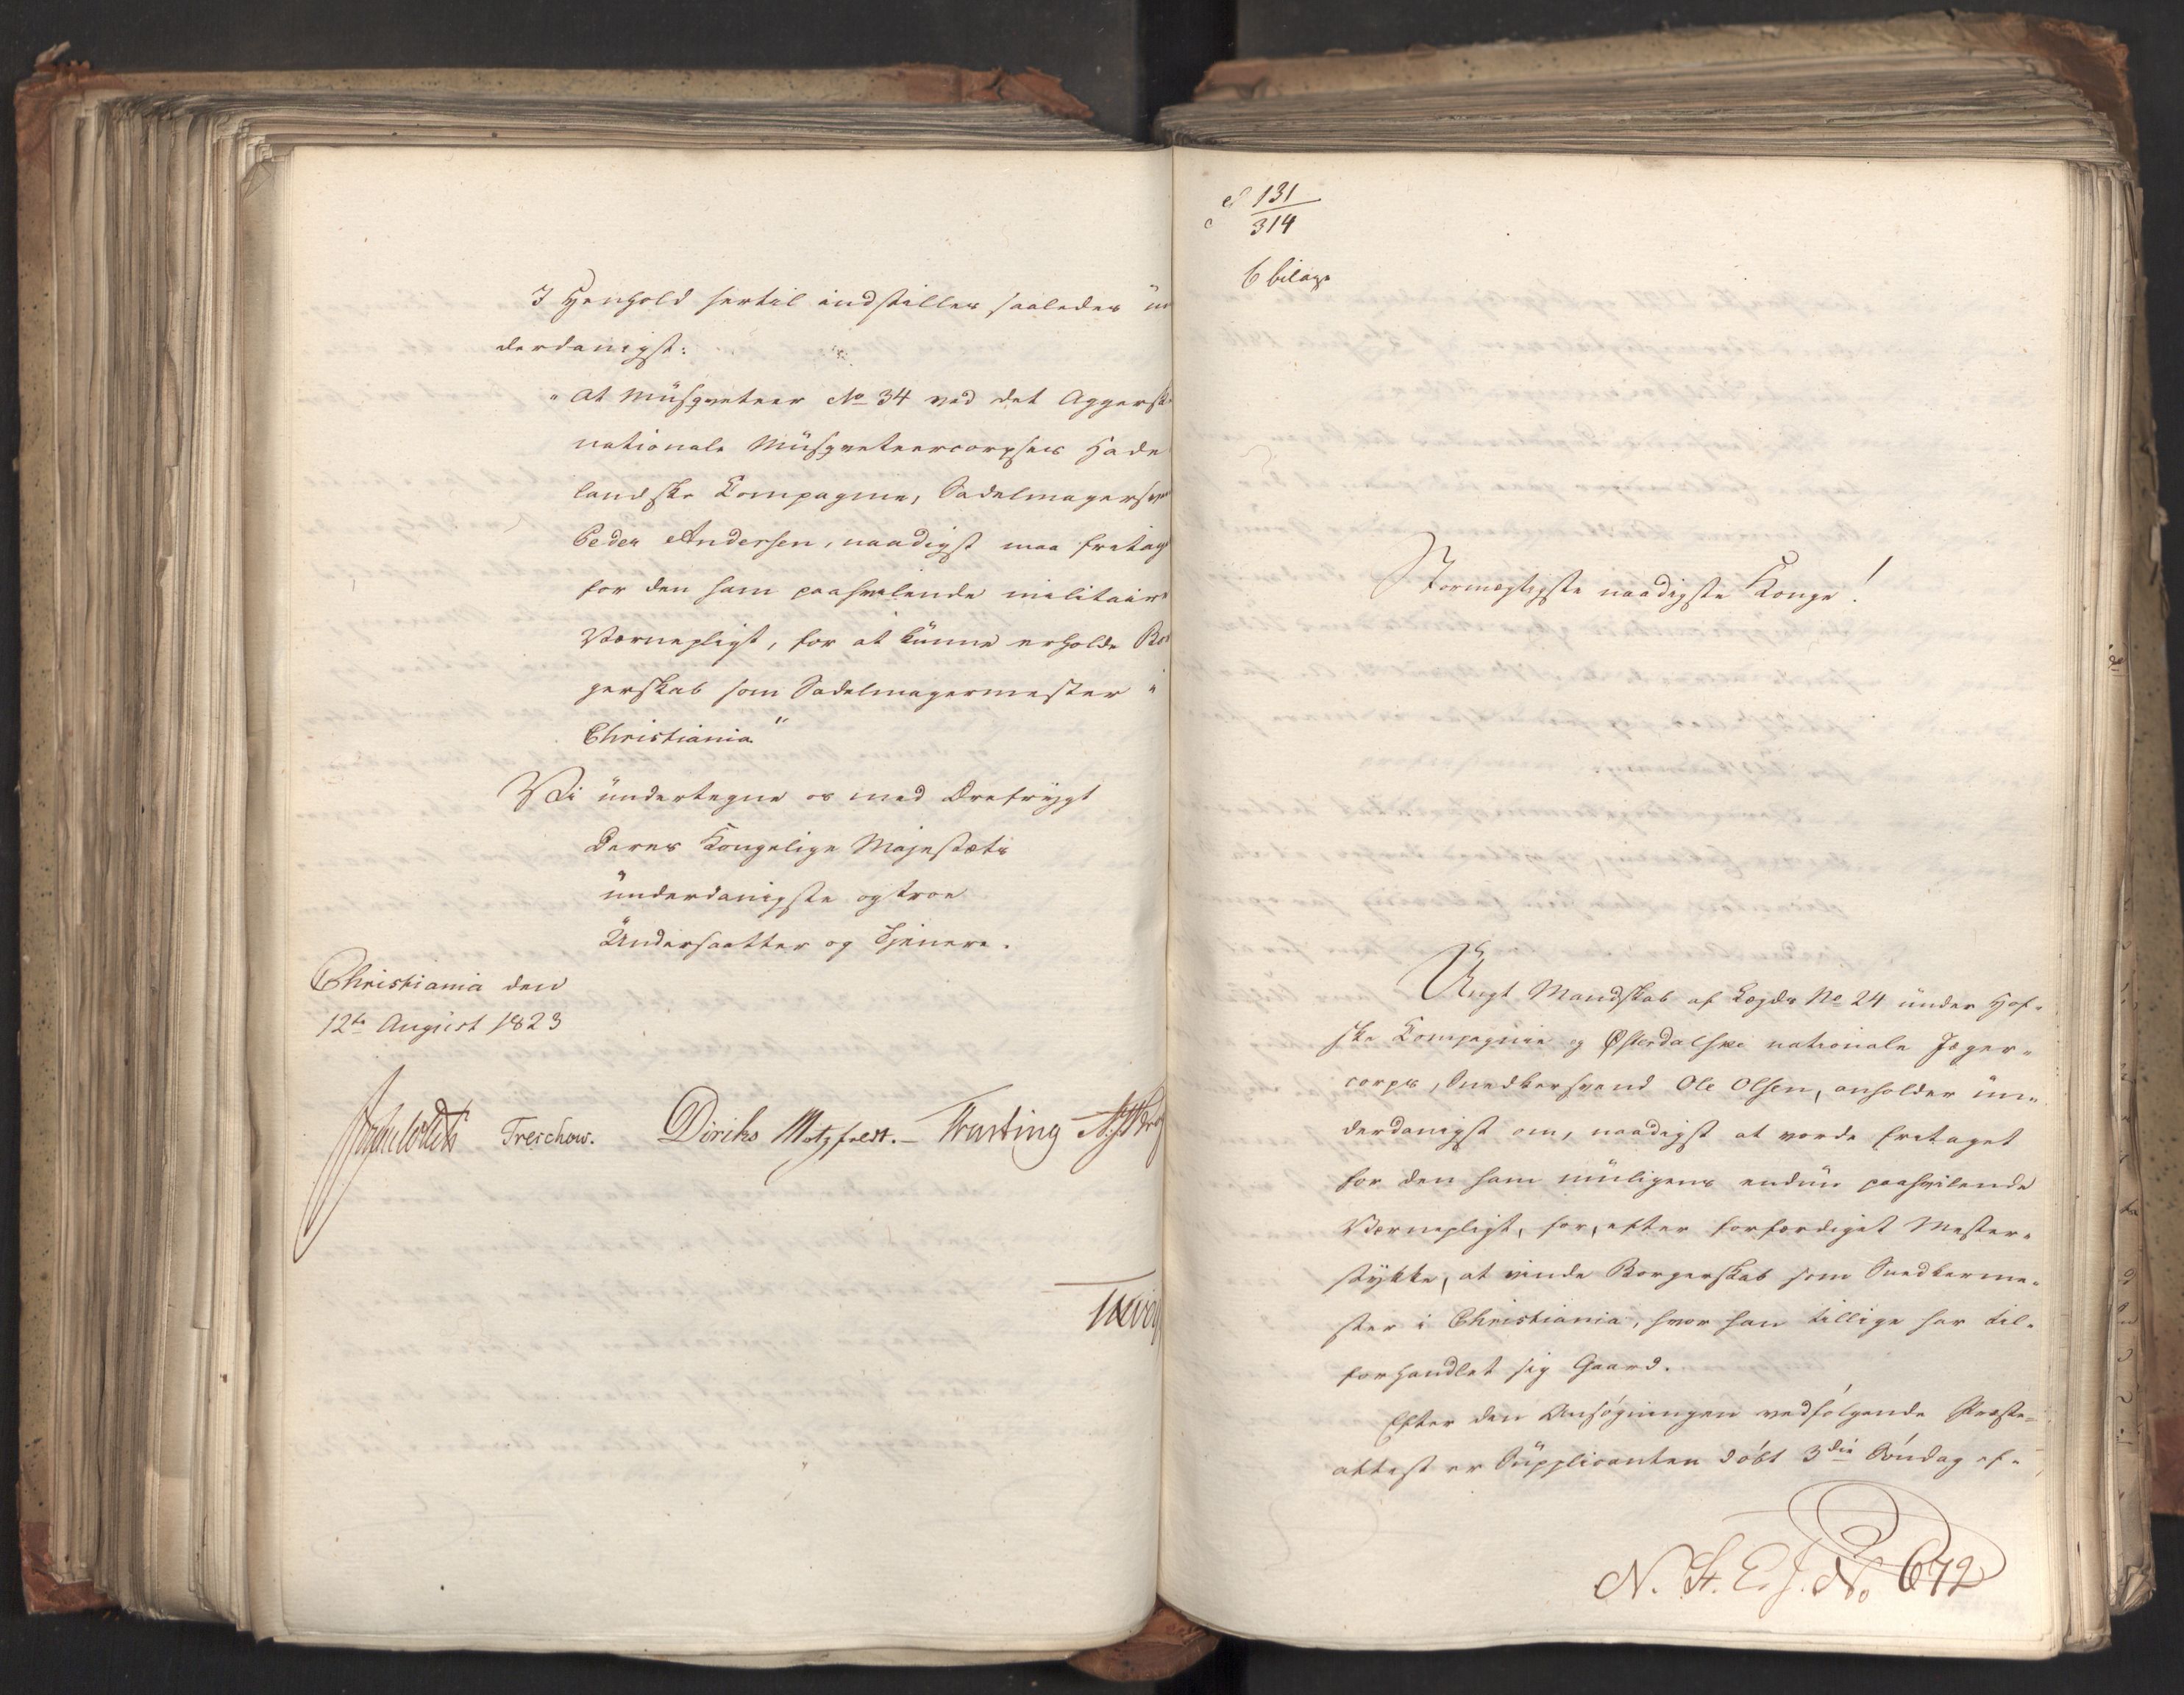 I Henhold hertil indstilles saaledes un
derdanigst:
"At Musqveteer No 34 ved det Aggersh
nationale Musqveteercorpses Hade
landske Compagnie, Sadelmagersv
Peder Andersen, naadigst maa fritag
for den ham paahvilende militair
Værnepligt, for at kunne erholde Bo
gerskab som Sadelmagermester i
Christiania"
Vi undertegne os med Ærefrygt
Deres Kongelige Majestæts
underdanigste og troe
Undersaatter og Tjenere.
Christiania den
12te August 1823
Treschow. Diriks Motzfeldt.
131
314
6 bilage
Stormægtigste naadigste Konge!
Ungt Mandskab af Lægds No 24 under Hof-
ske Compagnie og Østerdalske nationale Jæger-
corps, Snedkersvend Ole Olsen, anholder un-
derdanigst om, naadigst at vorde fritaget
for den ham muligens endnu paahvilende
Værnepligt, for, efter forfærdiget Mester-
stykke, at vinde Borgerskab som Snedkerme-
ster i Christiania, hvor han tillige har til-
forhandlet sig Gaard.
Efter den Ansøgningen vedfølgende Præste-
attest er Supplicanten døbt 3die Søndag ef-
N. St. E. J. No 672